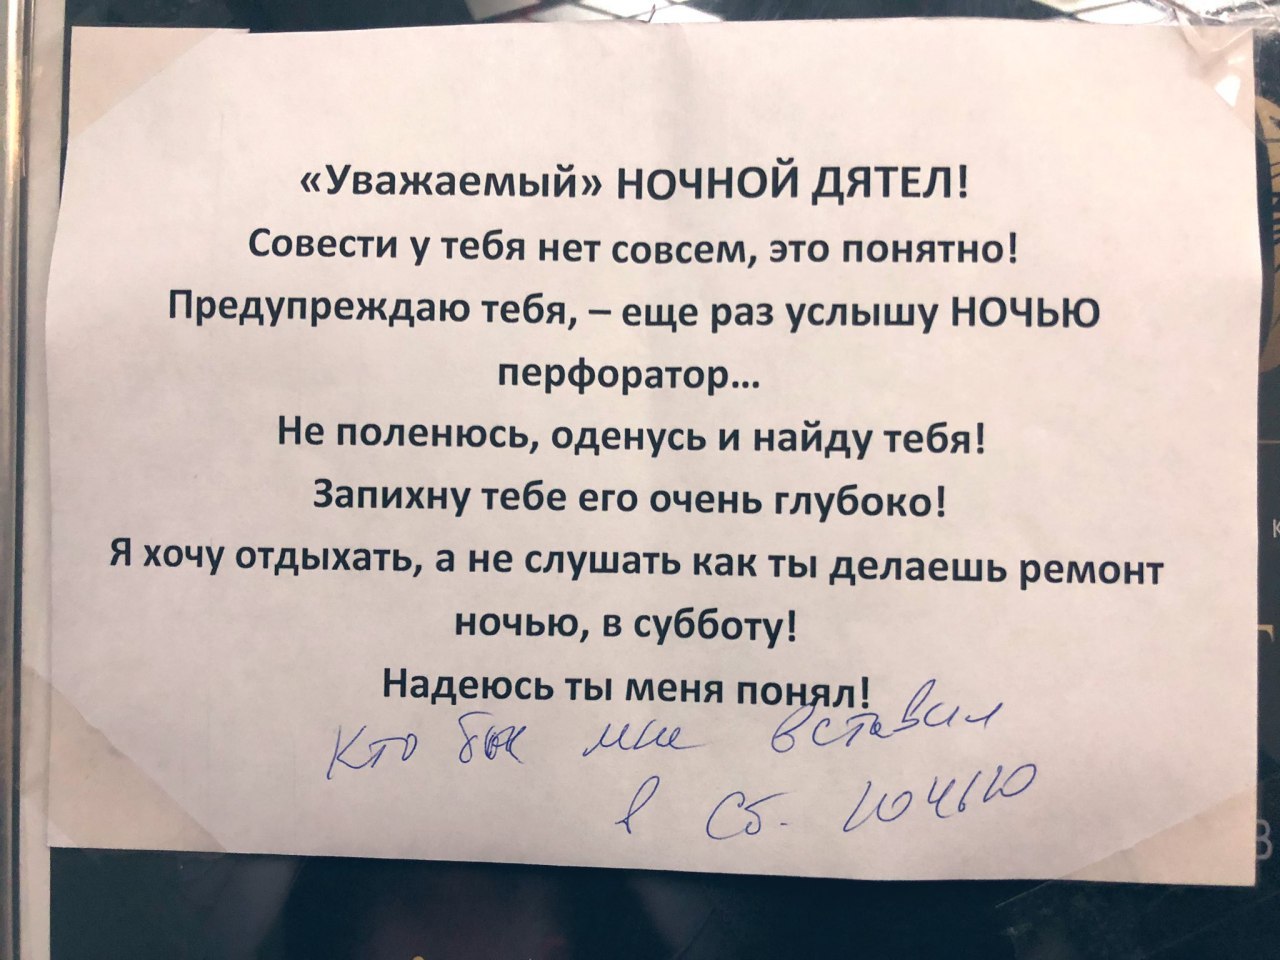 «Уважаемый» НОЧНОЙ ДЯТЕЛ!
Совести у тебя нет совсем, это понятно!
Предупреждаю тебя, – еще раз услышу НОЧЬЮ
перфоратор...
Не поленюсь, оденусь и найду тебя!
Запихну тебе его очень глубоко!
Я хочу отдыхать, а не слушать как ты делаешь ремонт
ночью, в субботу!
Надеюсь ты меня понял!
Кто бы мне вставил
в Сб. ночью